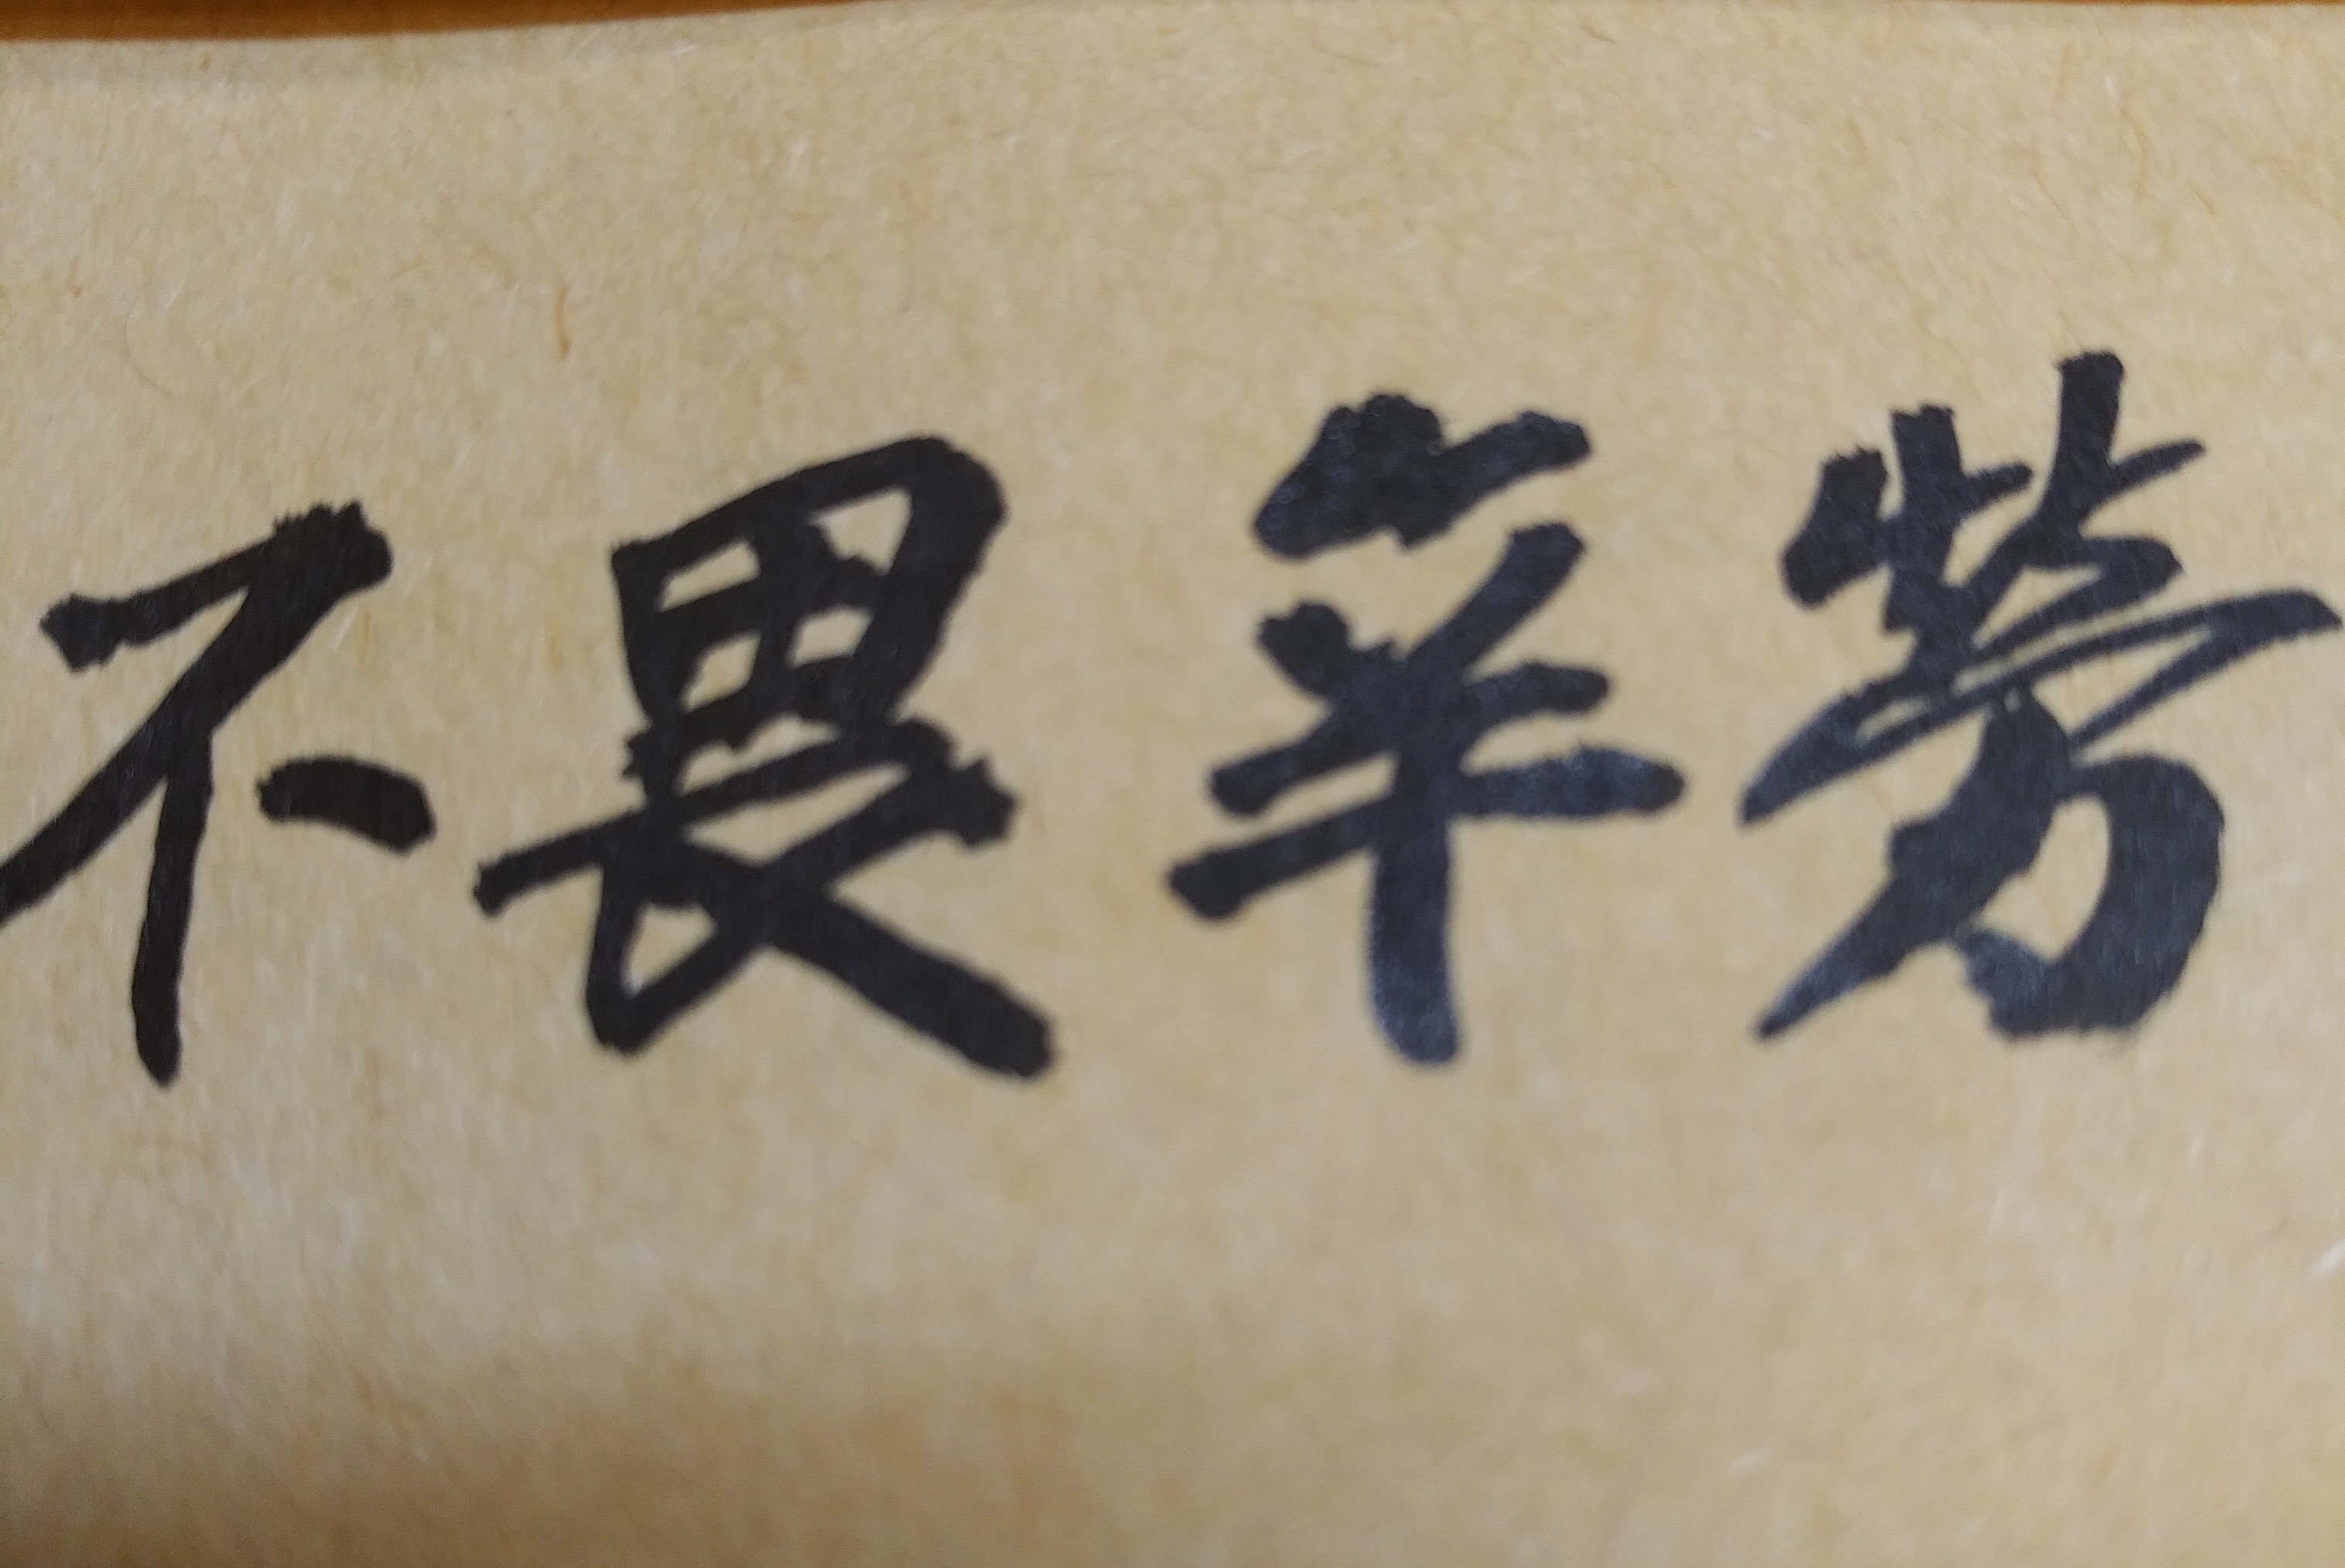 不畏辛劳